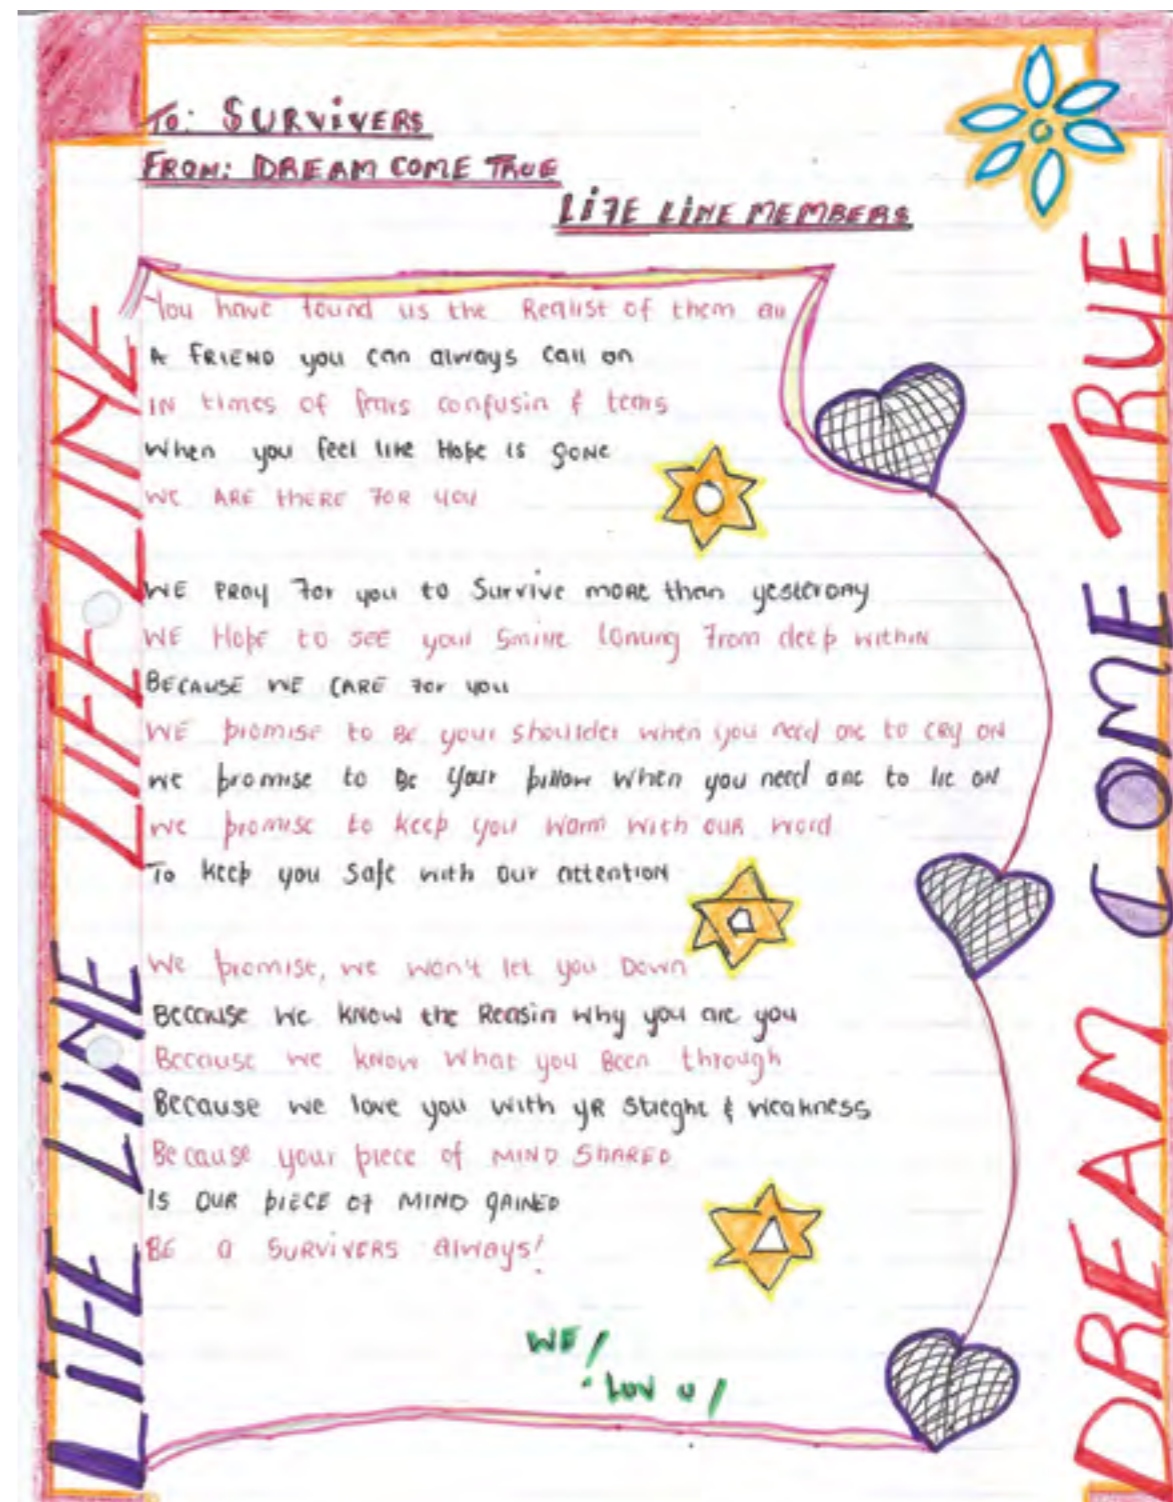 To: SURVIVERS
FROM: DREAM COME TRUE
LIFE LINE MEMBERS
You have found us the Realist of them all
A FRIEND you can always call on
IN times of fears confusin & tears
When you feel like Hope is GONE
WE ARE tHERE FOR YOU
WE PRAY For you to Survive more than yesterday
WE HOPE to SEE your Smile Coming From deep within
BECAUSE WE CARE For you
WE promise to Be your shoulder when you need one to CRY ON
We promise to Be your pillow When you need one to lie ON
We promise to keep you Warm With OUR Word
To keep you Safe with Our attention
We promise, we won't let you Down
Because We KNOW the Reasin Why you are you
Because we know What you Been through
Because we love you with yR & Weakness
Because your piece of MIND SHARED
IS OUR piECE OF MIND GAINED
BE a SURVIVERS always!
WE!
LOV U!
LIFE LINE LIFE LINE
DREAM COME TRUE